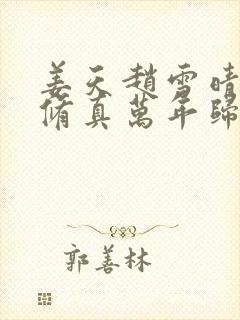 姜天趙雪晴
脩真萬年歸
郭善林